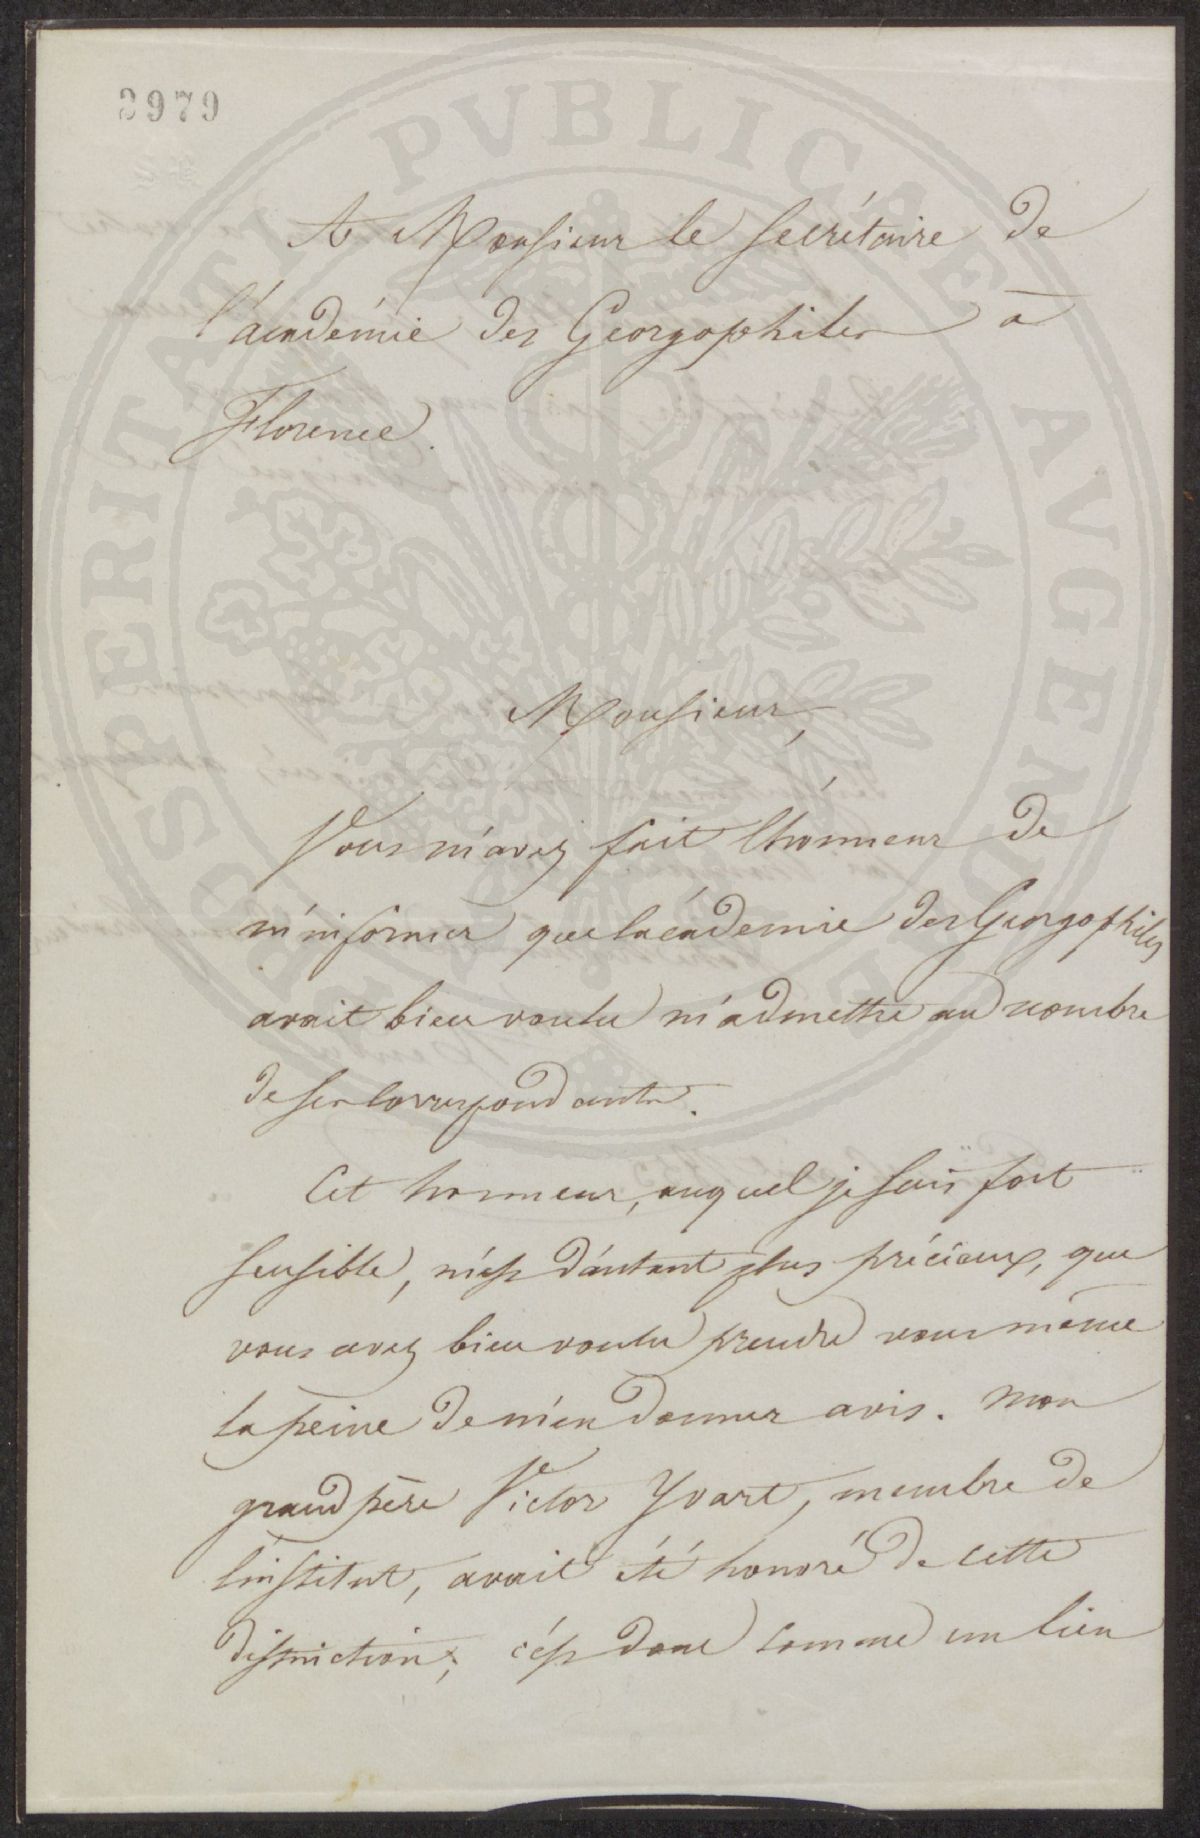 2979
A Monsieur le secrétaire de
l'académie des Georgophiles à
Florence.
Monsieur,
Vous m'avez fait l'honneur de
m'informer que l'académie des Georgophiles
avait bien voulu m'admettre au nombre
de ses correspondants.
Cet honneur, auquel je suis fort
sensible, m'est d'autant plus précieux, que
vous avez bien voulu prendre vous même
la peine de m'en donner avis. Mon
grand père Victor Yvart, membre de
l'institut, avait été honoré de cette
distinction; c'est donc comme un lien
PROSPERITATI PVBLICAE AVGENDAE